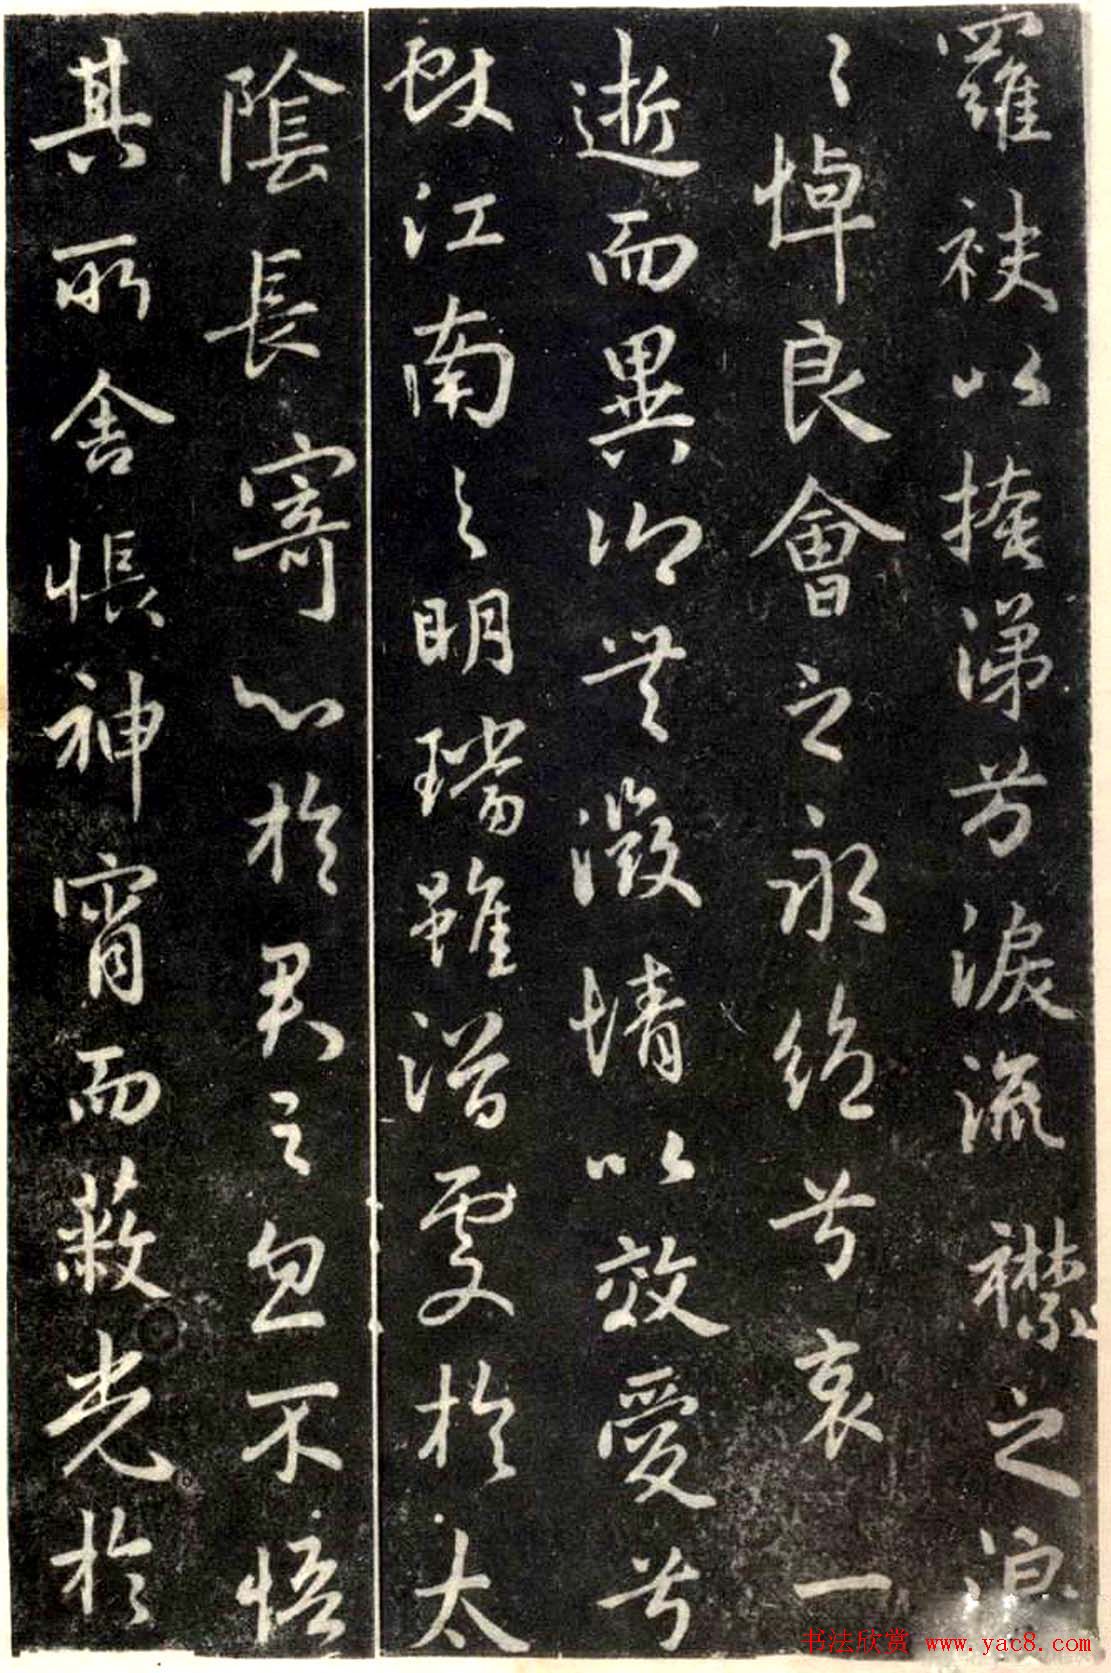 羅袂以掩涕兮淚流襟之浪
〻悼良會之永絕兮哀一
逝而異鄉無微情以效愛兮
獻江南之明璫雖潛處於太
陰長寄心於君之忽不悟
其所舍悵神宵而蔽光於
书法欣赏 www.yac8.com